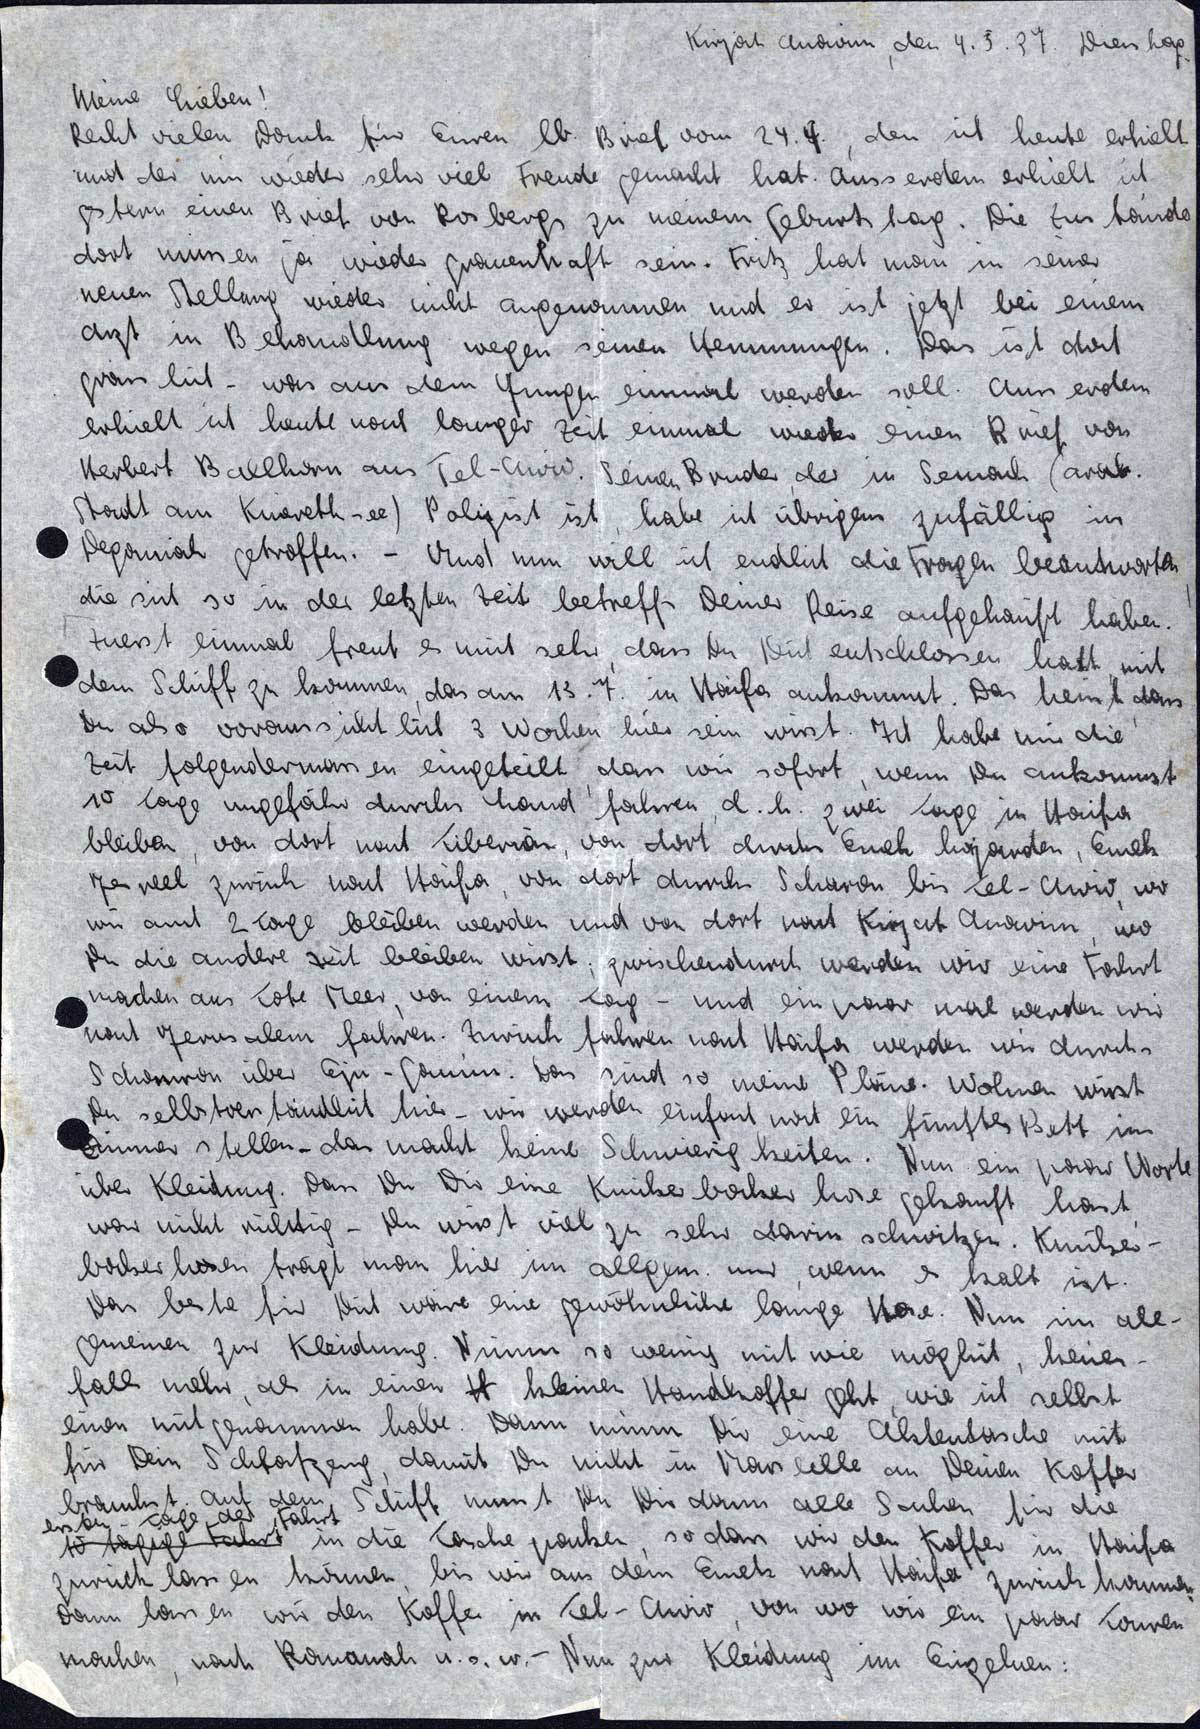 Kirjat Anawim, den 4.5.37. Dienstag.
Meine Lieben!
Recht vielen Dank für Euren lb. Brief vom 24.4., den ich heute erhielt
und der mir wieder sehr viel Freude gemacht hat. Ausserdem erhielt ich
gestern einen Brief von Rosbergs zu meinem Geburtstag. Die Zustände
dort müssen ja wieder grauenhaft sein. Fritz hat man in seiner
neuen Stellung wieder nicht angenommen und er ist jetzt bei einem
Arzt in Behandlung wegen seinen Hemmungen. Das ist dort
grässlich - was aus dem Jungen einmal werden soll. Ausserdem
erhielt ich heute nach langer Zeit einmal wieder einen Brief von
Herbert Ballhorn aus Tel-Awiw. Seinen Bruder, der in Semach (arab.
Stadt am Kinereth-see) Polizist ist, habe ich übrigens zufällig in
Deganiah getroffen. - Und nun will ich endlich die Fragen beantworten,
die sich so in der letzten Zeit betreffs Deiner Reise aufgehäuft haben.
Zuerst einmal freut es mich sehr, dass Du Dich entschlossen hast, mit
dem Schiff zu kommen, das am 13.7. in Haifa ankommt. Das heisst, dass
Du also voraussichtlich 3 Wochen hier sein wirst. Ich habe mir die
Zeit folgendermassen eingeteilt, dass wir sofort, wenn Du ankommst
10 Tage ungefähr durchs Land fahren, d.h. zwei Tage in Haifa
bleiben, von dort nach Tiberias, von dort durchs Emek hajarden, Emek
Jesreel zurück nach Haifa, von dort durchs Scharon bis Tel-Awiw, wo
wir auch 2 Tage bleiben werden und von dort nach Kirjat Anawim, wo
Du die andere Zeit bleiben wirst; zwischendurch werden wir eine Fahrt
machen ans Tote Meer, von einem Tag - und ein paar mal werden wir
nach Jerusalem fahren. Zurück fahren nach Haifa werden wir durchs
Schomron über Ejn-Ganim. Das sind so meine Pläne. Wohnen wirst
Du selbstverständlich hier - wir werden einfach noch ein fünftes Bett ins
Zimmer stellen - das macht keine Schwierigkeiten. Nun ein paar Worte
über Kleidung. Dass Du Dir eine Knickerbockerhose gekauft hast
war nicht richtig - Du wirst viel zu sehr darin schwitzen. Knicker-
bockerhosen trägt man hier im allgem. nur, wenn es kalt ist.
Das beste für Dich wäre eine gewöhnliche lange Hose. Nun im all-
gemeinen zur Kleidung. Nimm so wenig mit wie möglich, keines-
falls mehr, als in einen kleinen Handkoffer geht, wie ich selbst
einen mitgenommen habe. Dann nimm Dir eine Aktentasche mit
für Dein Schlafzeug, damit Du nicht in Marseille an Deinen Koffer
brauchst. Auf dem Schiff musst Du Dir dann alle Sachen für die
ersten Tage der Fahrt
10 tägige Fahrt in die Tasche packen, sodass wir den Koffer in Haifa
zurücklassen können, bis wir aus dem Emek nach Haifa zurückkommen.
Dann lassen wir den Koffer in Tel-Awiw, von wo wir ein paar Touren
machen, nach Raanah u.s.w. - Nun zur Kleidung im Einzelnen: